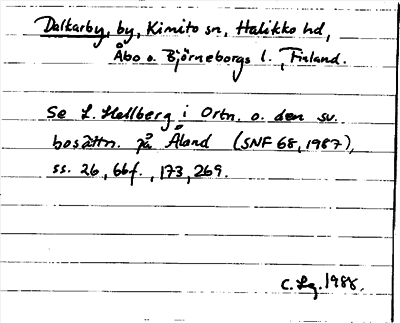 Dalkarby, by, Kimito sn, Halikko hd,
Åbo o. Björneborgs l., Finland.
Se L. Hellberg i Ortn. o. den sv.
bosättn. på Åland (SNF 68, 1987),
ss. 26, 66f., 173, 269.
C. Lg. 1988.